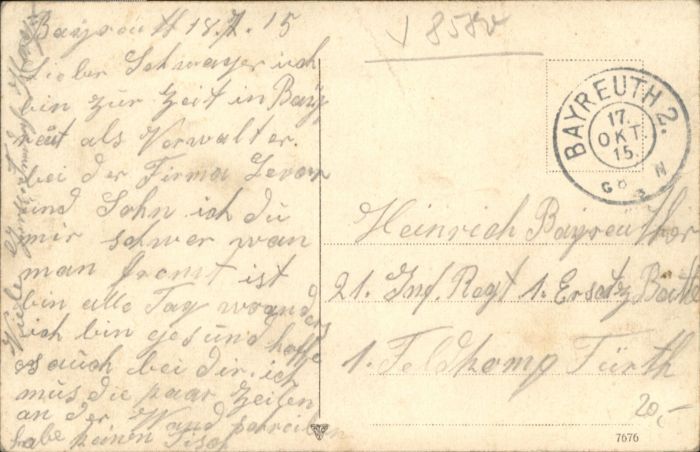 Bayreut 18.7.15
Lieber Schwager ich
bin zur Zeit in Bay
reut als Verwalter.
bei der Firma
und Sohn ich du
mir schwer wan
man fremt ist
bin alle Tag woanders
ich bin gesund hoffe
es auch bei dir. ich
mus die paar Zeilen
an der Wand schreiben
habe keinen Tisch
Viele
8580
BAYREUTH 2.
17.
OKT.
15.
N
Heinrich Bayreuther
21. Inf. Regt 1. Ersatz
1. Feldkomp Fürth
20,-
7676